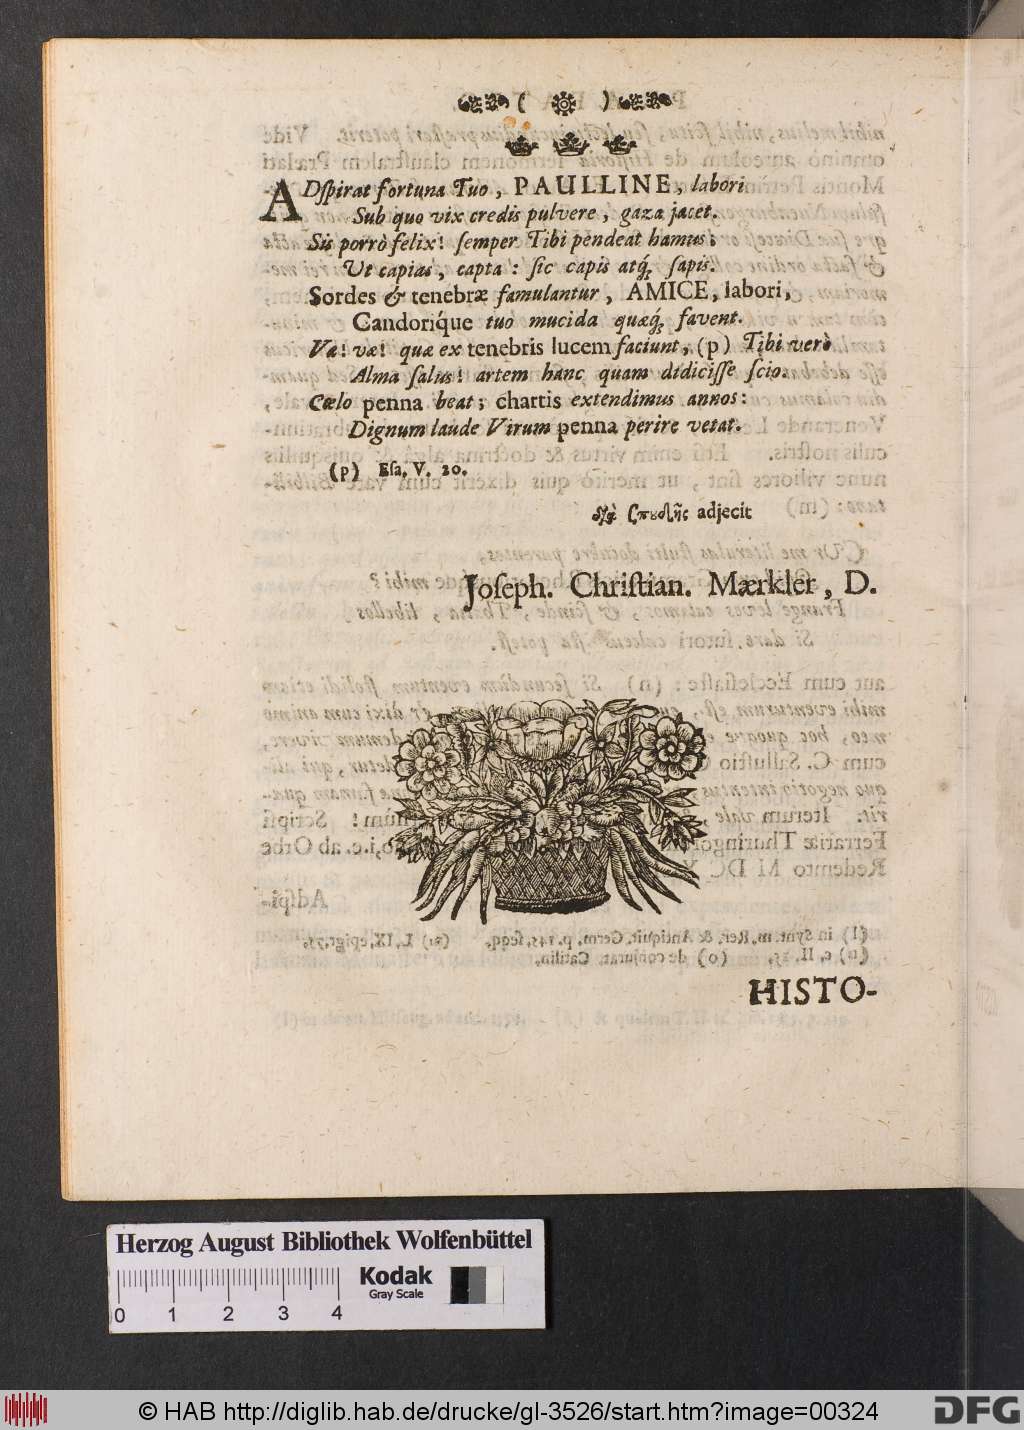 ADſpirat fortuna Tuo, PAULLINE, labori
Sub quo vix credis pulvere, gaza jacet.
Sis porrò felix! ſemper Tibi pendeat hamus:
Ut capias, capta: ſic capis atq́; ſapis.
Sordes & tenebræ famulantur, AMICE, labori,
Candoriq́ue tuo mucida quæq́; favent.
Væ! væ! quæ ex tenebris lucem faciunt, (p) Tibi verò
Alma ſalus! artem hanc quam didiciſſe ſcio.
Cælo penna beat; chartis extendimus annos:
Dignum laude Virum penna perire vetat.
(p) Eſa. V. 20.
διὰ ςπουδῆς adjecit
Joſeph. Chriſtian. Mærkler, D.
HISTO-
Herzog August Bibliothek Wolfenbüttel
Kodak
Gray Scale
0 1 2 3 4
© HAB http://diglib.hab.de/drucke/gl-3526/start.htm?image=00324
DFG